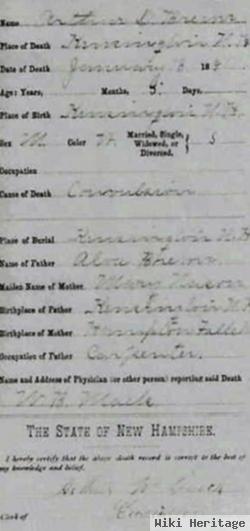 Name Arthur D. Brown
Place of Death Kensington N.H.
Date of Death January 8 18
Age: Years, Months, 5 Days,
Place of Birth Kensington N.H.
Sex M Color W Married, Single, Widowed, or Divorced, } S
Occupation
Cause of Death Convulsion
Place of Burial Kensington N.H.
Name of Father Brown
Maiden Name of Mother Mary
Birthplace of Father Kensington N.H.
Birthplace of Mother Hampton Falls
Occupation of Father Carpenter.
Name and Address of Physician (or other person) reporting said Death
W. B. Mack
THE STATE OF NEW HAMPSHIRE.
I hereby certify that the above death record is correct to the best of
my knowledge and belief.
Clerk of
Wiki Heritage